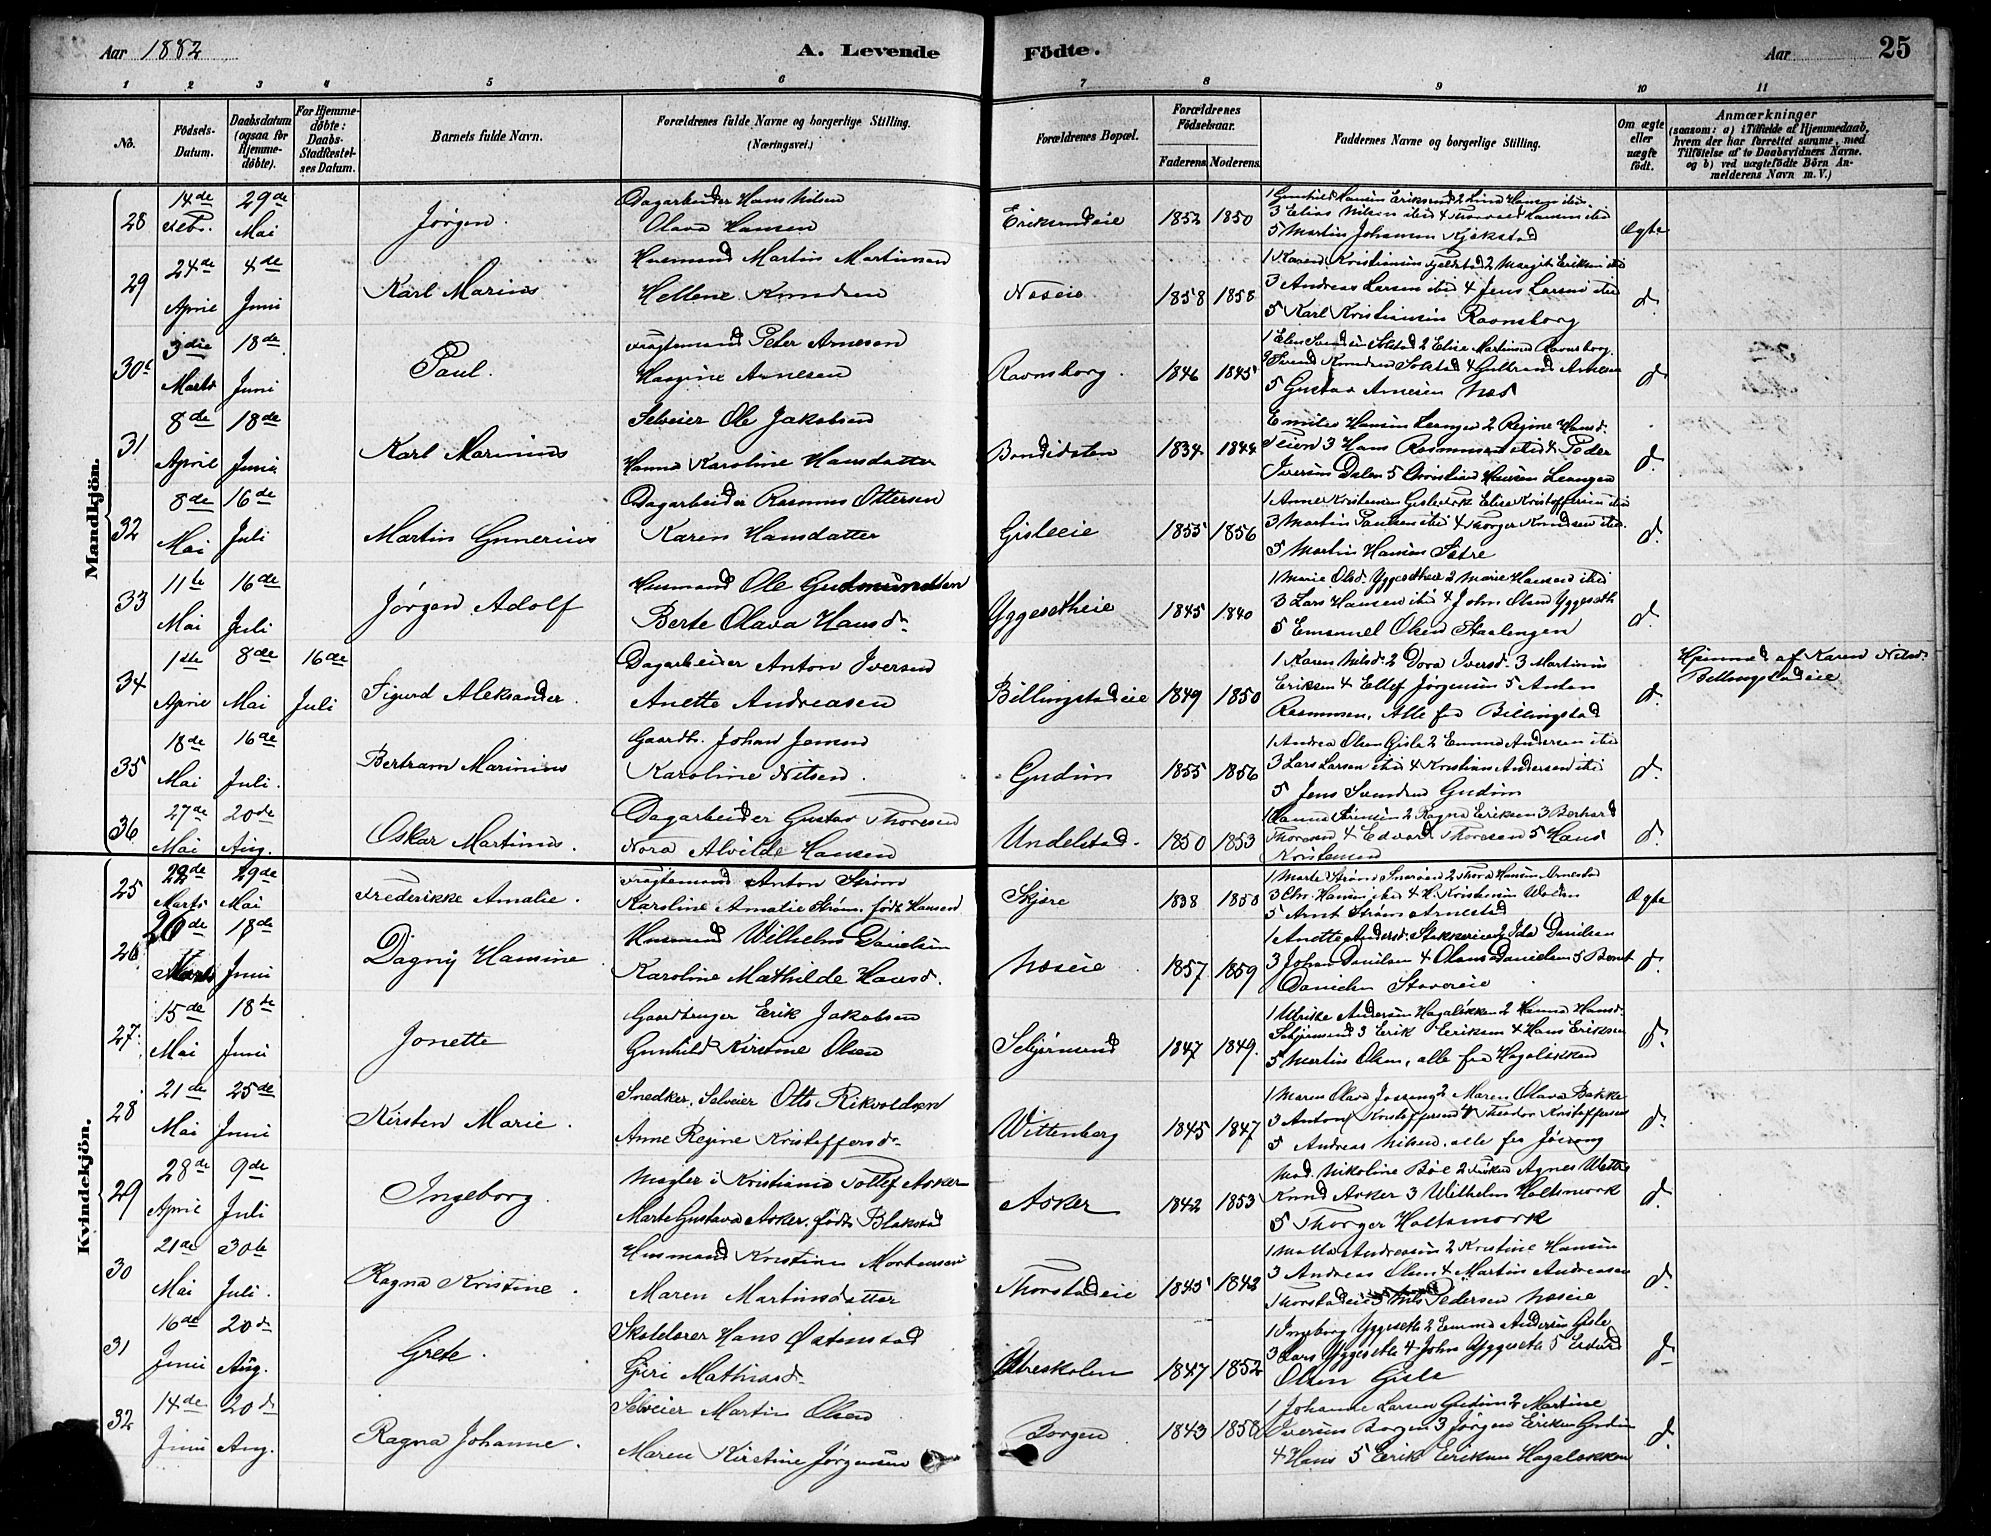 Aar 1882
A. Levende Födte.
Aar 25
1 2 3 4 5 6 7 8 9 10 11
No.
Födsels-Datum.
Daabsdatum (ogsaa for Hjemmedøbte).
For Hjemmedøbte: Daabs-Stadfæstelses Datum.
Barnets fulde Navn.
Forældrenes fulde Navne og borgerlige Stilling. (Næringsvei.)
Forældrenes Bopæl.
Forældrenes Födselsaar.
Faderens. Moderens.
Faddernes Navne og borgerlige Stilling.
Om ægte eller uægte födt.
Anmærkninger
(saasom: a) i Tilfælde af Hjemmedaab, hvem der har forrettet samme, med Tilföielse af to Daabsvidners Navne. og b) ved uægtefödte Börn Anmelderens Navn m. V.)
Mandkjön.
28 14de Febr. 29de Mai Jørgen. Dagarbeider Hans Nilsen
Olava Hansen Eriksrudeie 1852 1850
3 Elias Nilsen ibid 4 Thorvald Hansen ibid
5 Martin Johansen Kjøkstad Ægte
29 24de April 4de Juni Karl Marius Husmand Martin Martinsen
Hellene Knudsen Næseie 1858 1858
3 Andreas Larsen ibid 4 Jens Larsen ibid
5 Karl Kristiansen Ravnsborg d.
30 3die Marts 18de Juni Paul. Fragtemand Peter Arnesen
Haagine Arnesen Ravnsborg. 1846 1845
1 Elen Svendsen Solstad 2 Elise Martinsen Ravnsborg.
3 Svend Knudsen Solstad 4 Gulbrand Arnesen
5 Gustav Arnesen Næs d
31 8de April 18de Juni Karl Marinius Selveier Ole Jakobsen
Hanna Karoline Hansdatter 1834 1844
Emilie Hansen Leangen 2 Regine Hansd.
3 Hans Rasmussen ibid 4 Peder
Iversen Dalen 5 Christian Hansen Leangen d.
32 8de Mai 16de Juli Martin Gunerius Dagarbeider Rasmus Ottersen
Karen Hansdatter Gisleeie 1855 1856
3 Martin Paulsen ibid 4 Thorger Knudsen ibid.
5 Martin Hansen Sætre d.
33 11te Mai 16de Juli Jørgen Adolf Husmand Ole Gudmundsen
Berte Olava Hansd. Yggesetheie 1845 1840
1 Marie Olsd. Yggesetheie 2 Marie Hansen ibid
3 Lars Hansen ibid 4 John Olsen Yggeseth
5 Emanuel Olsen Staalengen d.
34 1ste April 8de Mai 16de Juli Sigurd Aleksander. Dagarbeider Anton Iversen
Anette Andreasen Billingstadeie 1849 1850
1 Karen Nilsd. 2 Dora Iversd. 3 Martinius
Eriksen 4 Ellef Jørgensen 5 Anton
Rasmussen, Alle fra Billingstad d.
Hjemmed. af Karen Nilsd. Billingstadeie
35 18de Mai 16de Juli. Bertram Marinius Gaardb. Johan Jensen
Karoline Nilsen. Gudim 1855 1856
1 Andrea Olsen Gisle 2 Emma Andersen ibid
3 Lars Larsen ibid 4 Kristian Andersen ibid
5 Jens Svendsen Gudim d.
36 27de Mai 20de Aug. Oskar Martinus. Dagarbeider Gustav Thoresen
Nora Alvilde Hansen Undelstad. 1850 1853
2 Ragna Eriksen 3 Berhard
Thoresen 4 Edvard Thoresen 5 Hans
Kristensen d.
Kvindekjön.
25 22de Marts 29de Mai Frederikke Amalie. Fragtemand Anton Strøm
Karoline Amalie Strøm, født Hansen Skjære 1838 1850
1 Marte Strøm Snarøen 2 Thora Hansen Arnestad
5 Arnt Strøm Arnestad Ægte
26 26de Marts 18de Juni Dagny Hansine Husmand Wilhelm Danielsen
Karoline Mathilde Hansd. Næseie 1857 1859
2 Ida Danielsen
3 Johan Danielsen 4 Olaus Danielsen 5 Bernt
Danielsen d.
27. 15de Mai 18de Juni Jonette Gaardbruger Erik Jakobsen
Gunhild Kirstine Olsen 1847 1849.
1 Ulrikke Andersen Hagaløkken 2 Hanna Hansd.
3 Erik Eriksen 4 Hans Eriksen
5 Martin Olsen, alle fra Hagaløkken d.
28 21de Mai 25de Juni Kirsten Marie. Snedker, Selveier Otto Rikvoldsen
Anne Regine Kristoffersd. Wittenberg 1845 1847
1 Maren Olava Jossang 2 Maren Olava Bakke
3 Anton Kristoffersen 4 Theodor Kristoffersen
5 Andreas Nilsen, alle fra d.
29 28de April 9de Juli Ingeborg. Mægler i Kristiania Tollef Asker
Marte Gustava Asker, født Blakstad Asker 1842 1853
Mad. Nikoline Bøe 2 Frøken Agnes
Knud Asker 3 Wilhelm Holtsmork
5 Thorger Holtsmork d.
30 21de Mai 30te Juli. Ragna Kristine. Husmand Kristian Mortensen
Maren Martinsdatter Thorstadeie 1845 1842
2 Kristine Hansen
3 Andreas Olsen 4 Martin Andreasen
Thorstadeie 5 Nils Pedersen Næseie d.
31 16de Juni 20de Aug. Grete. Skolelærer Hans Østenstad
Guri Mathiasd. 1847 1852
1 Ingeborg Yggeseth 2 Emma Andersen Gisle
3 Lars Yggeseth 4 John Yggeseth 5 Edvard
Olsen Gisle d.
32 14de Juni 20de Aug. Ragna Johanne. Selveier Martin Olsen
Maren Kirstine Jørgensen Borgen 1843 1858
1 Johanne Larsen Gudim 2 Martine
Iversen Borgen 3 Jørgen Eriksen Gudim
4 Hans 5 Erik Eriksen Hagaløkken d.